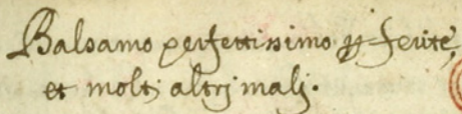 Balsamo perfettissimo p ferite,
et moltj altrj malj.